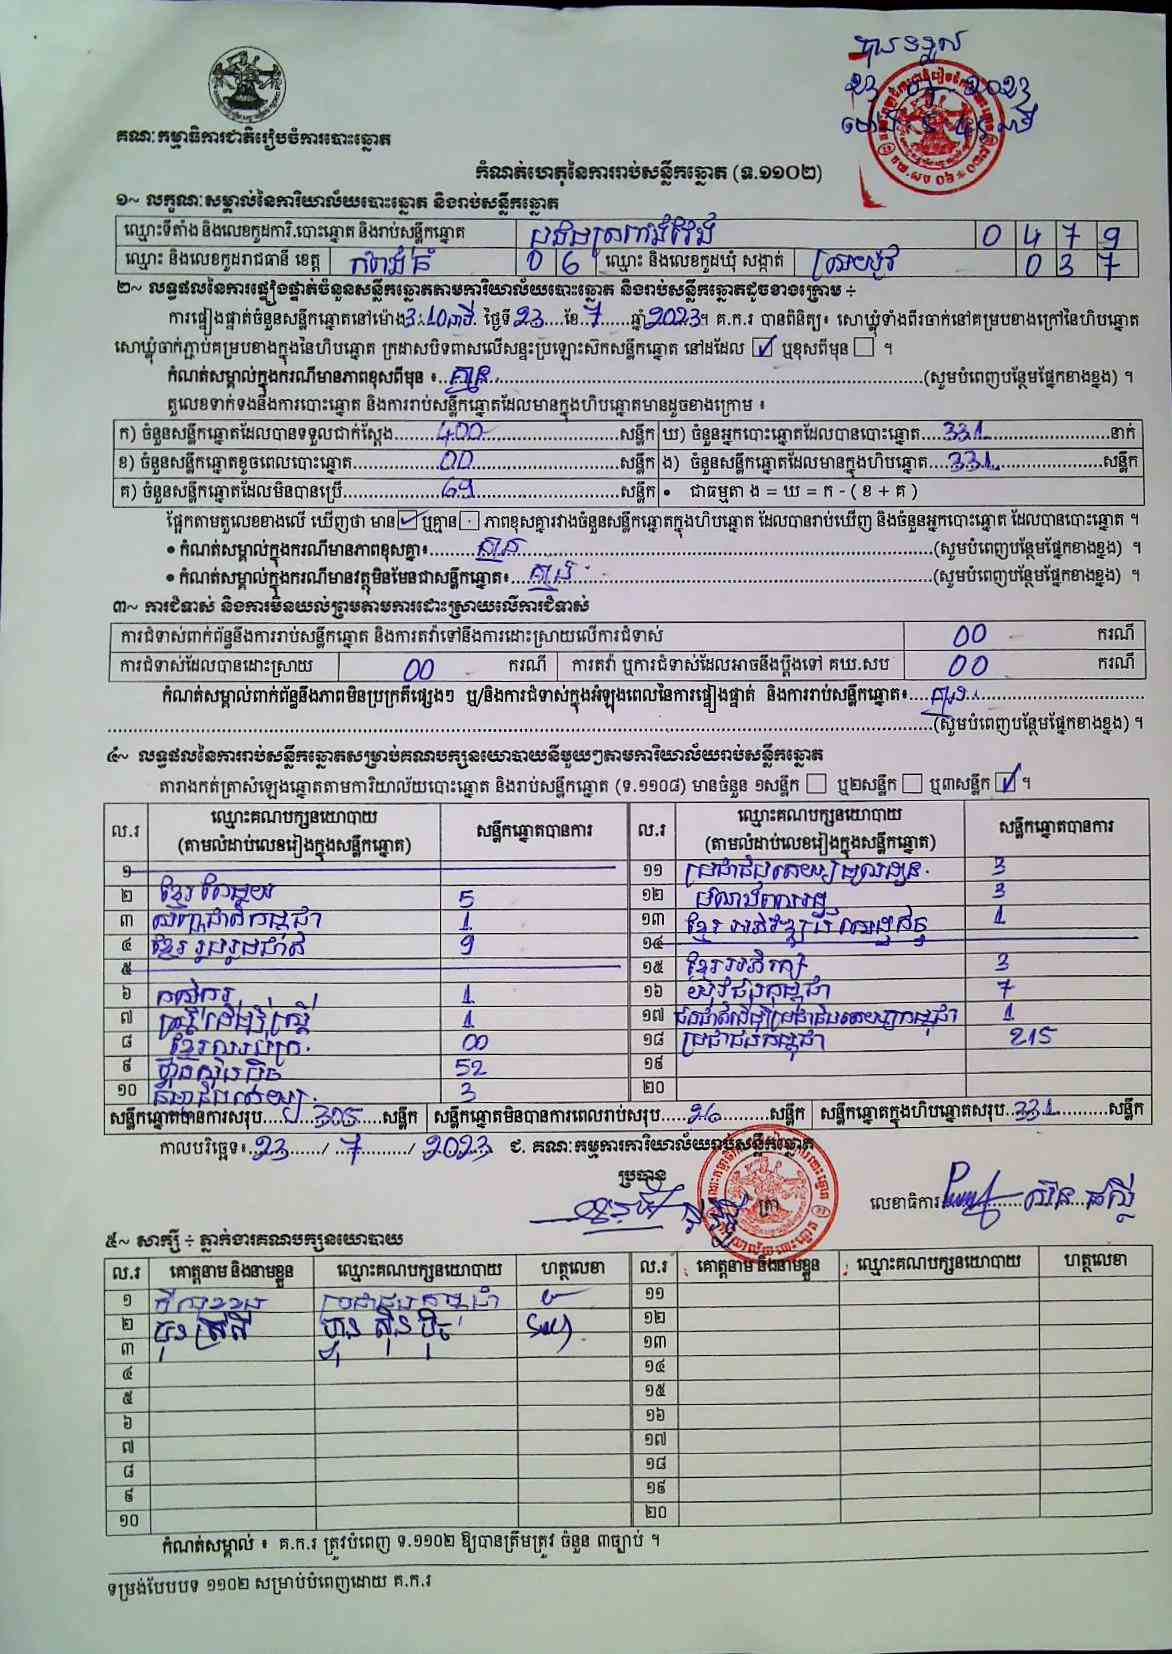 បានទទួល
គណៈកម្មាធិការជាតិរៀបចំការបោះឆ្នោត
កំណត់ហេតុនៃការរាប់សន្លឹកឆ្នោត (ទ.១១០២)
១~ លក្ខណៈសម្គាល់នៃការិយាល័យបោះឆ្នោត និងរាប់សន្លឹកឆ្នោត
ឈ្មោះទីតាំង និងលេខកូដការិ.បោះឆ្នោត និងរាប់សន្លឹកឆ្នោត 0 4 7 9
ឈ្មោះ និងលេខកូដរាជធានី ខេត្ត កំពង់ធំ 0 6 ឈ្មោះ និងលេខកូដឃុំ សង្កាត់ 0 3 7
២~ លទ្ធផលនៃការផ្ទៀងផ្ទាត់ចំនួនសន្លឹកឆ្នោតតាមការិយាល័យបោះឆ្នោត និងរាប់សន្លឹកឆ្នោតដូចខាងក្រោម ÷
ការផ្ទៀងផ្ទាត់ចំនួនសន្លឹកឆ្នោតនៅម៉ោង 3:10នាទី ថ្ងៃទី 23 ខែ 7 ឆ្នាំ 2023។ គ.ក.រ បានពិនិត្យ៖ សោឃ្លុំទាំងពីរចាក់នៅគម្របខាងក្រៅនៃហិបឆ្នោត
សោឃ្លុំចាក់ភ្ជាប់គម្របខាងក្នុងនៃហិបឆ្នោត ក្រដាសបិទពាសលើសន្ទះប្រឡោះស៊កសន្លឹកឆ្នោត នៅដដែល ☑ ឬខុសពីមុន ☐ ។
កំណត់សម្គាល់ក្នុងករណីមានភាពខុសពីមុន ៖ គ្មាន (សូមបំពេញបន្ថែមផ្នែកខាងខ្នង) ។
តួលេខទាក់ទងនឹងការបោះឆ្នោត និងការរាប់សន្លឹកឆ្នោតដែលមានក្នុងហិបឆ្នោតមានដូចខាងក្រោម ៖
ក) ចំនួនសន្លឹកឆ្នោតដែលបានទទួលជាក់ស្តែង 400 សន្លឹក ឃ) ចំនួនអ្នកបោះឆ្នោតដែលបានបោះឆ្នោត 331 នាក់
ខ) ចំនួនសន្លឹកឆ្នោតខូចពេលបោះឆ្នោត 00 សន្លឹក ង) ចំនួនសន្លឹកឆ្នោតដែលមានក្នុងហិបឆ្នោត 331 សន្លឹក
គ) ចំនួនសន្លឹកឆ្នោតដែលមិនបានប្រើ 69 សន្លឹក • ជាធម្មតា ង = ឃ = ក - ( ខ + គ )
ផ្អែកតាមតួលេខខាងលើ ឃើញថា មាន ☑ ឬគ្មាន ☐ ភាពខុសគ្នារវាងចំនួនសន្លឹកឆ្នោតក្នុងហិបឆ្នោត ដែលបានរាប់ឃើញ និងចំនួនអ្នកបោះឆ្នោត ដែលបានបោះឆ្នោត ។
• កំណត់សម្គាល់ក្នុងករណីមានភាពខុសគ្នា៖ គ្មាន (សូមបំពេញបន្ថែមផ្នែកខាងខ្នង) ។
• កំណត់សម្គាល់ក្នុងករណីមានវត្ថុមិនមែនជាសន្លឹកឆ្នោត៖ គ្មាន (សូមបំពេញបន្ថែមផ្នែកខាងខ្នង) ។
៣~ ការជំទាស់ និងការមិនយល់ព្រមតាមការដោះស្រាយលើការជំទាស់
ការជំទាស់ពាក់ព័ន្ធនឹងការរាប់សន្លឹកឆ្នោត និងការតវ៉ាទៅនឹងការដោះស្រាយលើការជំទាស់ 00 ករណី
ការជំទាស់ដែលបានដោះស្រាយ 00 ករណី ការតវ៉ា ឬការជំទាស់ដែលអាចនឹងប្តឹងទៅ គឃ.សប 00 ករណី
កំណត់សម្គាល់ពាក់ព័ន្ធនឹងភាពមិនប្រក្រតីផ្សេងៗ ឬ/និងការជំទាស់ក្នុងអំឡុងពេលនៃការផ្ទៀងផ្ទាត់ និងការរាប់សន្លឹកឆ្នោត៖ គ្មាន
(សូមបំពេញបន្ថែមផ្នែកខាងខ្នង) ។
៤~ លទ្ធផលនៃការរាប់សន្លឹកឆ្នោតសម្រាប់គណបក្សនយោបាយនីមួយៗតាមការិយាល័យរាប់សន្លឹកឆ្នោត
តារាងកត់ត្រាសំឡេងឆ្នោតតាមការិយាល័យបោះឆ្នោត និងរាប់សន្លឹកឆ្នោត (ទ.១១០៨) មានចំនួន ១សន្លឹក ☐ ឬ២សន្លឹក ☐ ឬ៣សន្លឹក ☑ ។
ល.រ ឈ្មោះគណបក្សនយោបាយ (តាមលំដាប់លេខរៀងក្នុងសន្លឹកឆ្នោត) សន្លឹកឆ្នោតបានការ ល.រ ឈ្មោះគណបក្សនយោបាយ (តាមលំដាប់លេខរៀងក្នុងសន្លឹកឆ្នោត) សន្លឹកឆ្នោតបានការ
១ ១១ ប្រជាធិបតេយ្យមូលដ្ឋាន 3
២ ខ្មែរតែមួយ 5 ១២ 3
៣ សញ្ជាតិកម្ពុជា 1 ១៣ ខ្មែរអភិវឌ្ឍន៍សេដ្ឋកិច្ច 1
៤ ខ្មែររួបរួមជាតិ 9 ១៤
៥ ១៥ ខ្មែរអភិរក្ស 3
៦ កសិករ 1 ១៦ យុវជនកម្ពុជា 7
៧ ស្ត្រីដើម្បីស្ត្រី 1 ១៧ 1
៨ 00 ១៨ ប្រជាជនកម្ពុជា 215
៩ ហ៊្វុនស៊ិនប៉ិច 52 ១៩
១០ 3 ២០
សន្លឹកឆ្នោតបានការសរុប 305 សន្លឹក សន្លឹកឆ្នោតមិនបានការពេលរាប់សរុប 26 សន្លឹក សន្លឹកឆ្នោតក្នុងហិបឆ្នោតសរុប 331 សន្លឹក
កាលបរិច្ឆេទ៖ 23 / 7 / 2023 ជ. គណៈកម្មការការិយាល័យរាប់សន្លឹកឆ្នោត
ប្រធាន ត្រា លេខាធិការ
៥~ សាក្សី ÷ ភ្នាក់ងារគណបក្សនយោបាយ
ល.រ គោត្តនាម និងនាមខ្លួន ឈ្មោះគណបក្សនយោបាយ ហត្ថលេខា ល.រ គោត្តនាម និងនាមខ្លួន ឈ្មោះគណបក្សនយោបាយ ហត្ថលេខា
១ ប្រជាជនកម្ពុជា ១១
២ ហ៊្វុនស៊ិនប៉ិច ១២
៣ ១៣
៤ ១៤
៥ ១៥
៦ ១៦
៧ ១៧
៨ ១៨
៩ ១៩
១០ ២០
កំណត់សម្គាល់ ៖ គ.ក.រ ត្រូវបំពេញ ទ.១១០២ ឱ្យបានត្រឹមត្រូវ ចំនួន ៣ច្បាប់ ។
ទម្រង់បែបបទ ១១០២ សម្រាប់បំពេញដោយ គ.ក.រ